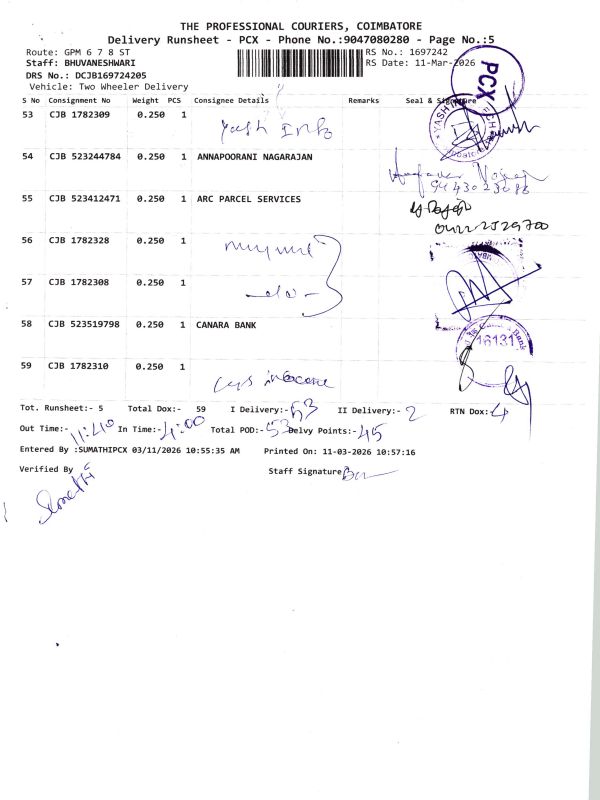 THE PROFESSIONAL COURIERS, COIMBATORE
Delivery Runsheet - PCX - Phone No.:9047080280 - Page No.:5
Route: GPM 6 7 8 ST RS No.: 1697242
Staff: BHUVANESHWARI RS Date: 11-Mar-2026
DRS No.: DCJB169724205
Vehicle: Two Wheeler Delivery
PCX
S No Consignment No Weight PCS Consignee Details Remarks Seal & Signature
53 CJB 1782309 0.250 1 Yash Info
54 CJB 523244784 0.250 1 ANNAPOORANI NAGARAJAN
9443023086
55 CJB 523412471 0.250 1 ARC PARCEL SERVICES
0422 2529700
56 CJB 1782328 0.250 1
57 CJB 1782308 0.250 1
58 CJB 523519798 0.250 1 CANARA BANK
16131
59 CJB 1782310 0.250 1
Tot. Runsheet:- 5 Total Dox:- 59 I Delivery:- 53 II Delivery:- 2 RTN Dox:- 4
Out Time:- 11:40 In Time:- 4:00 Total POD:- 53 Delvy Points:- 45
Entered By :SUMATHIPCX 03/11/2026 10:55:35 AM Printed On: 11-03-2026 10:57:16
Verified By Staff Signature
Sumathi